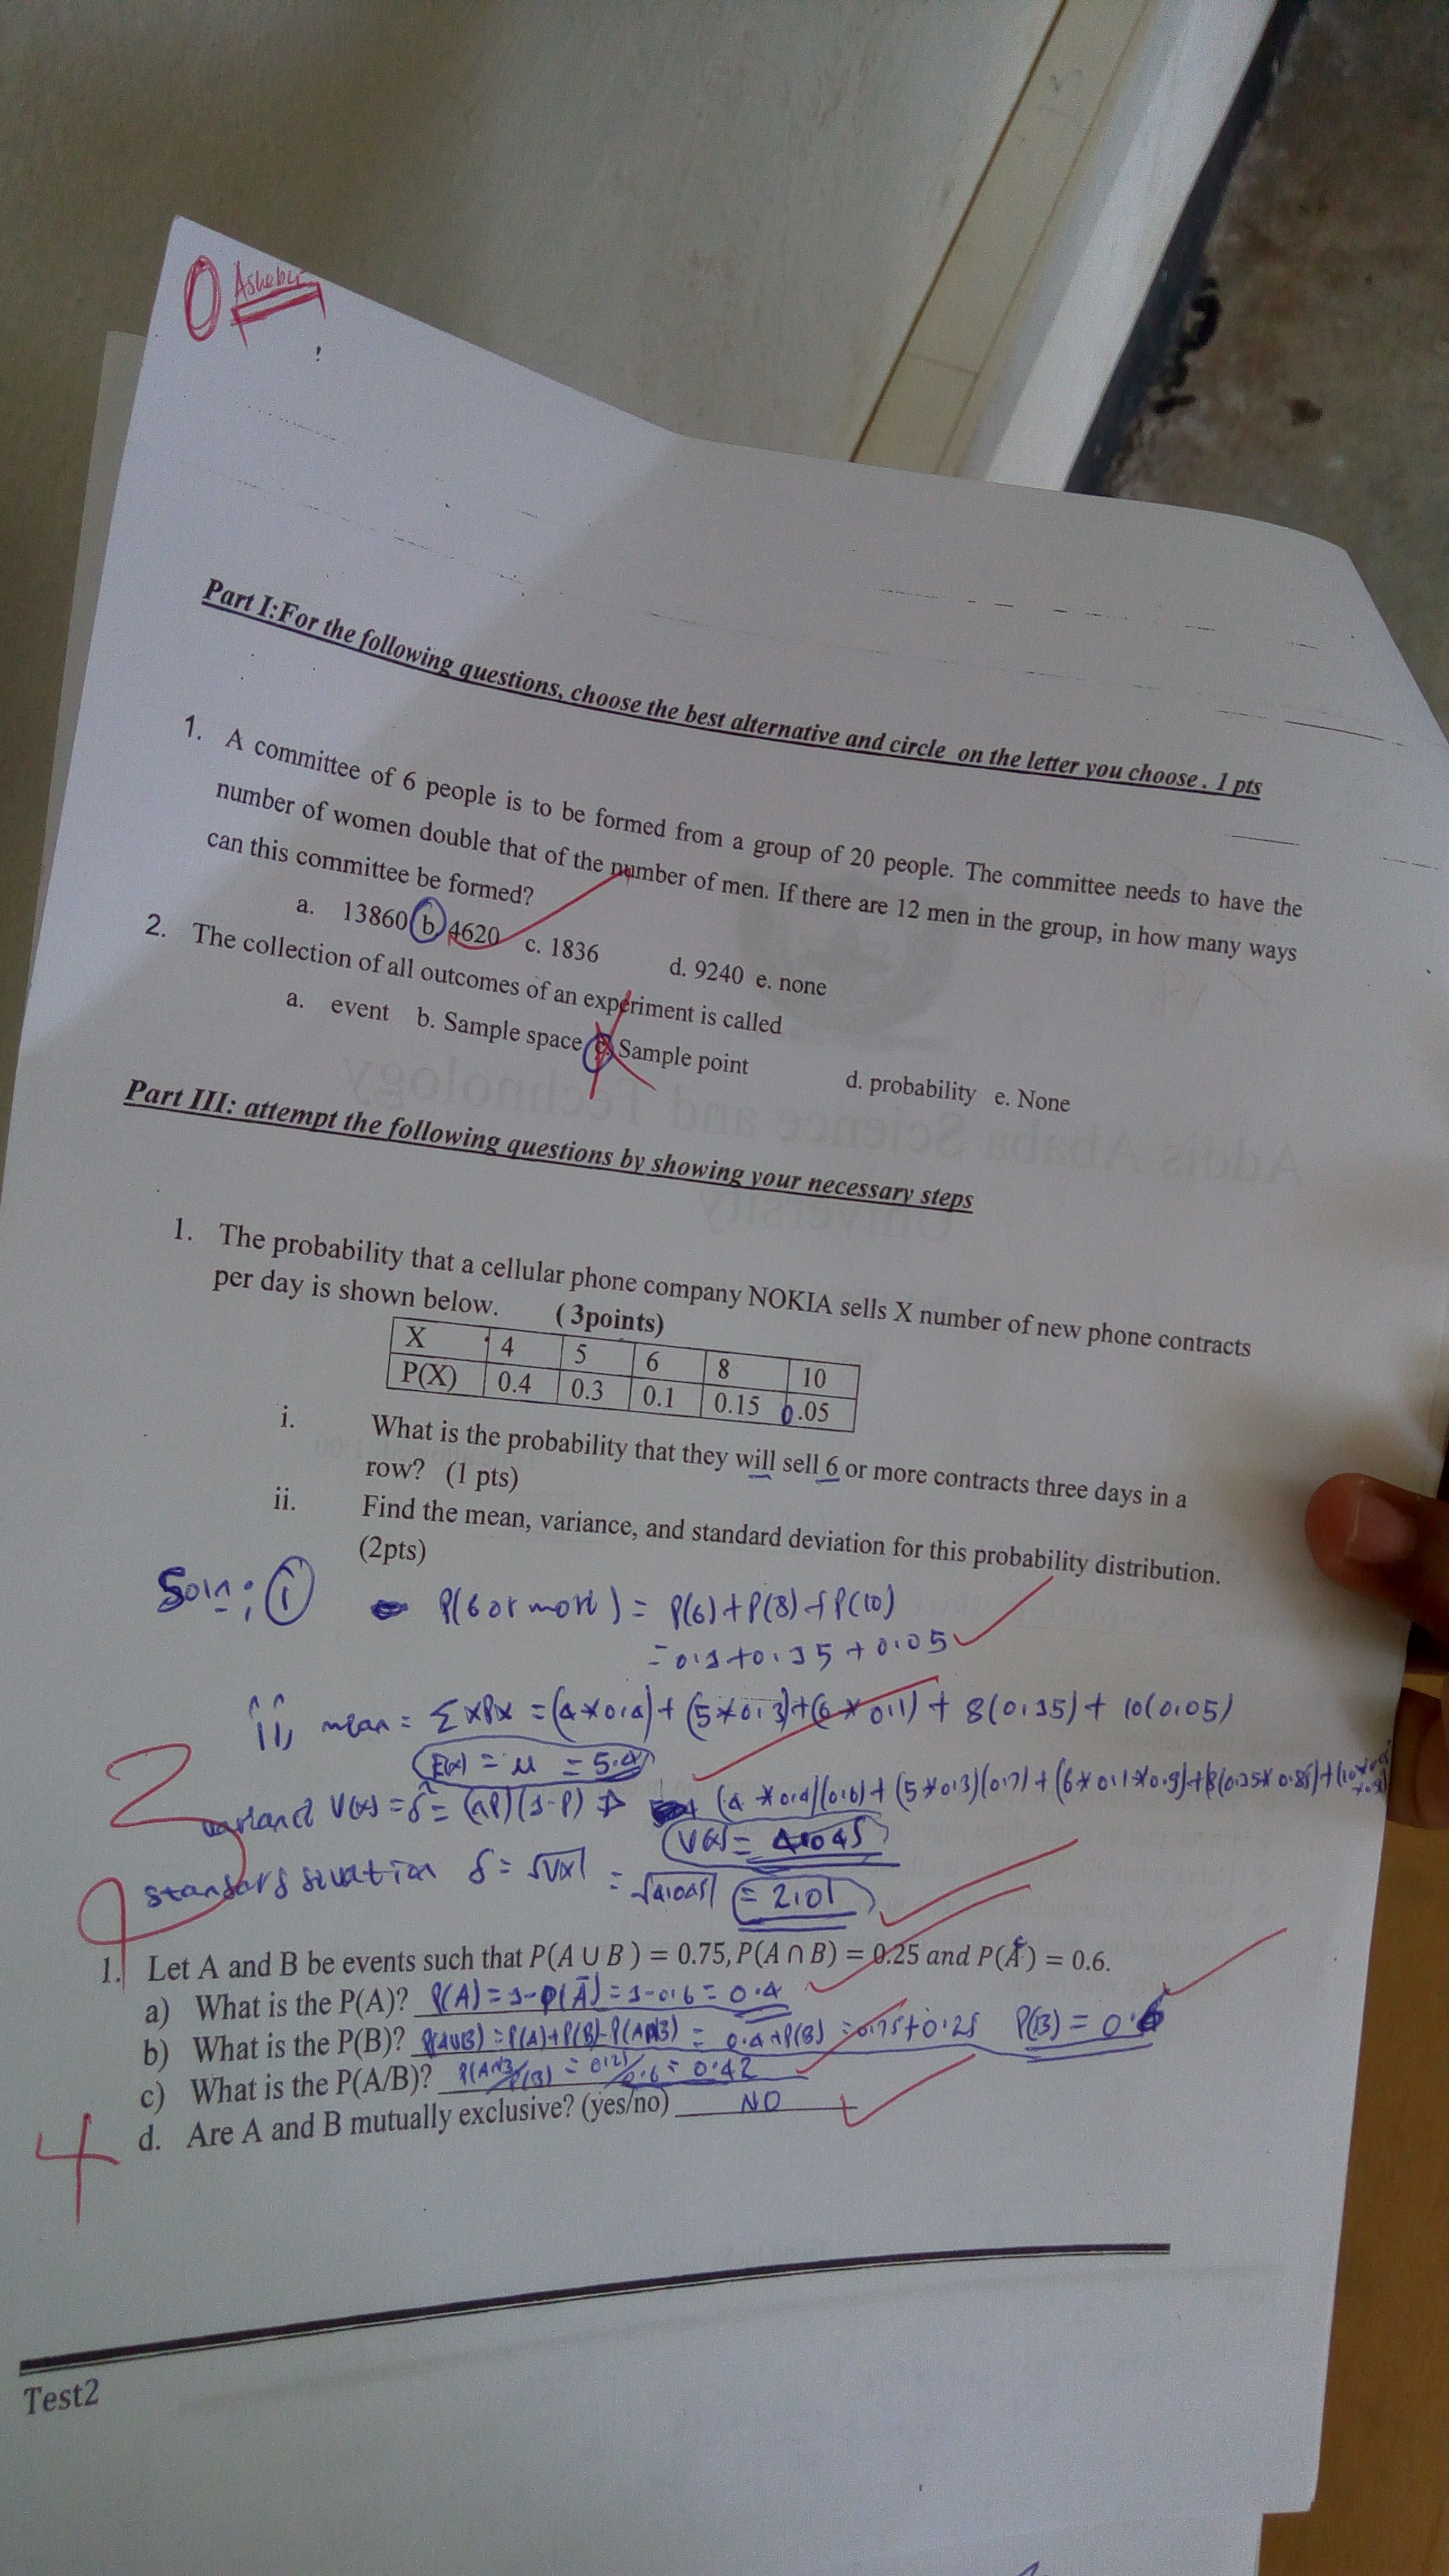 0 Ashebir
Part I:For the following questions, choose the best alternative and circle on the letter you choose . 1 pts
1. A committee of 6 people is to be formed from a group of 20 people. The committee needs to have the
number of women double that of the number of men. If there are 12 men in the group, in how many ways
can this committee be formed?
a. 13860 b. 4620 c. 1836 d. 9240 e. none
2. The collection of all outcomes of an experiment is called
a. event b. Sample space c. Sample point d. probability e. None
Addis Ababa Science and Technology
University
Part III: attempt the following questions by showing your necessary steps
1. The probability that a cellular phone company NOKIA sells X number of new phone contracts
per day is shown below. ( 3points)
X 4 5 6 8 10
P(X) 0.4 0.3 0.1 0.15 0.05
i. What is the probability that they will sell 6 or more contracts three days in a
row? (1 pts)
ii. Find the mean, variance, and standard deviation for this probability distribution.
(2pts)
Soln: i P(6 or more) = P(6)+P(8)+P(10)
= 0.1+0.15+0.05
ii, mean = ΣxPx = (4*0.4)+(5*0.3)+(6*0.1)+8(0.15)+10(0.05)
E(x) = μ = 5.4
2
variance V(x) = δ² = (np)(1-p) ⇒ (4*0.4)(0.6)+(5*0.3)(0.7)+(6*0.1*0.9)+(8(0.15*0.85)+(10*
V(x) = 4.045
standard δ = √Vx = √4.045 = 2.01
1. Let A and B be events such that P(A ∪ B ) = 0.75, P(A ∩ B) = 0.25 and P(Á) = 0.6.
a) What is the P(A)? P(A)=1-P(Ā)=1-0.6=0.4
b) What is the P(B)? P(AUB)=P(A)+P(B)-P(A∩B) = 0.4+P(B) = 0.75+0.25 P(B) = 0.6
c) What is the P(A/B)? P(A∩B)/P(B) = 0.25/0.6 = 0.42
d. Are A and B mutually exclusive? (yes/no) NO
4
Test2